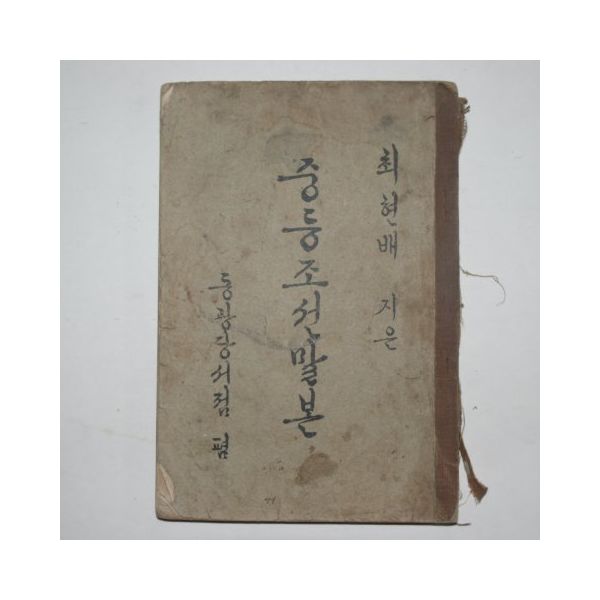 최현배 지은
중등조선말본
동광당서점